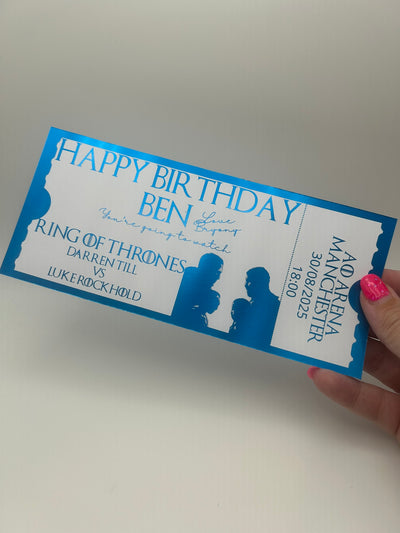 HAPPY BIRTHDAY
BEN
Love
Bryony
You're going to watch
RING OF THRONES
DARREN TILL
VS
LUKE ROCKHOLD
AO ARENA
MANCHESTER
30/08/2025
18:00